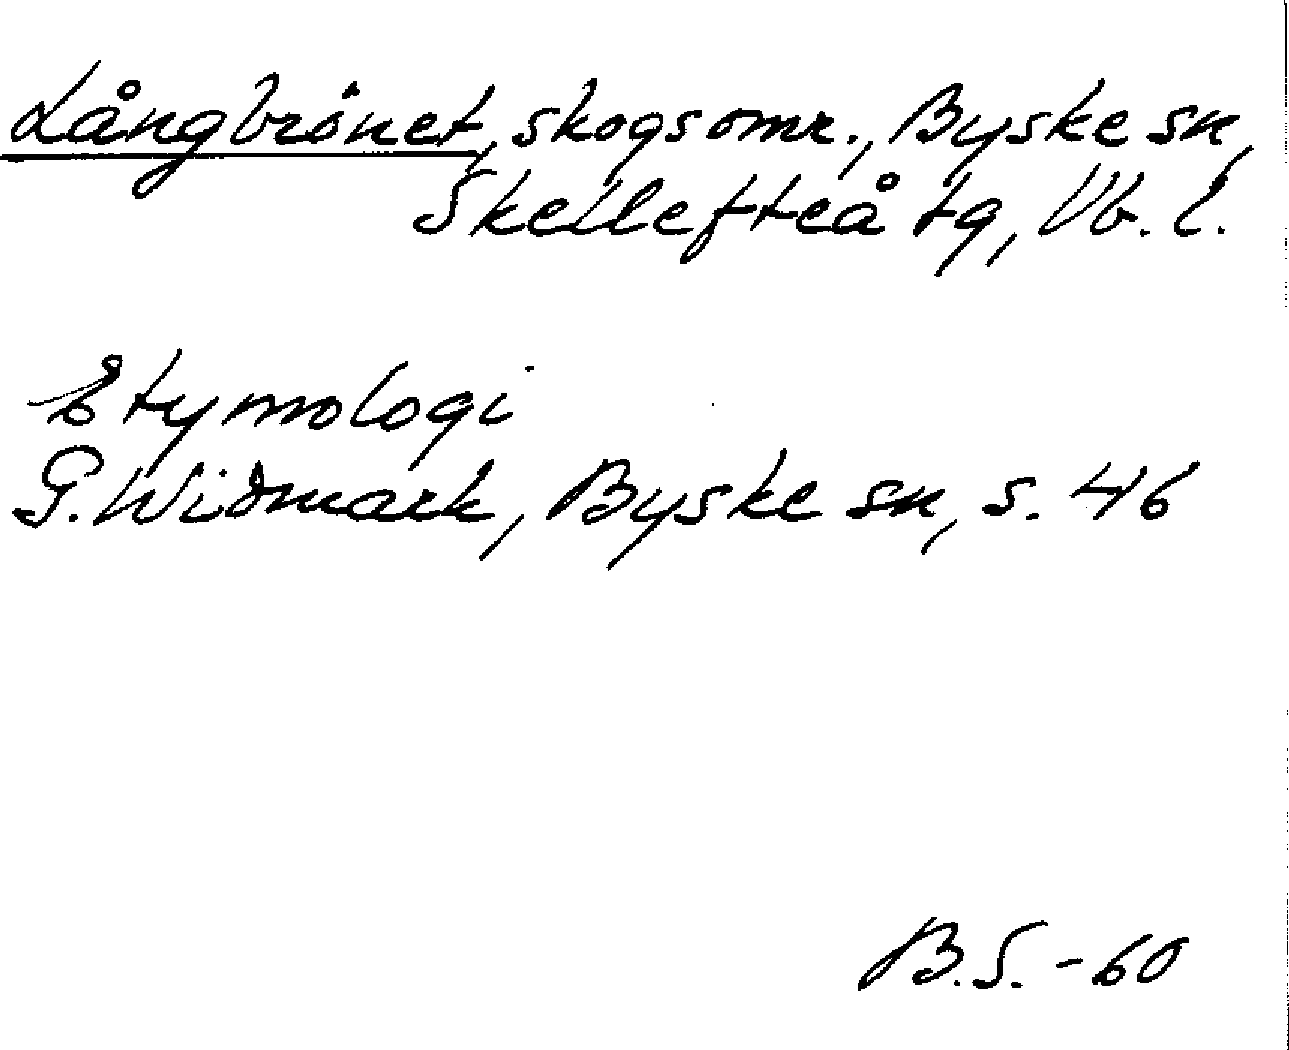 Långbrönet, skogsomr., Byske sn,
Skellefteå tg, Vb. l.
Etymologi
G. Widmark, Byske sn, s. 46
B.S. -60